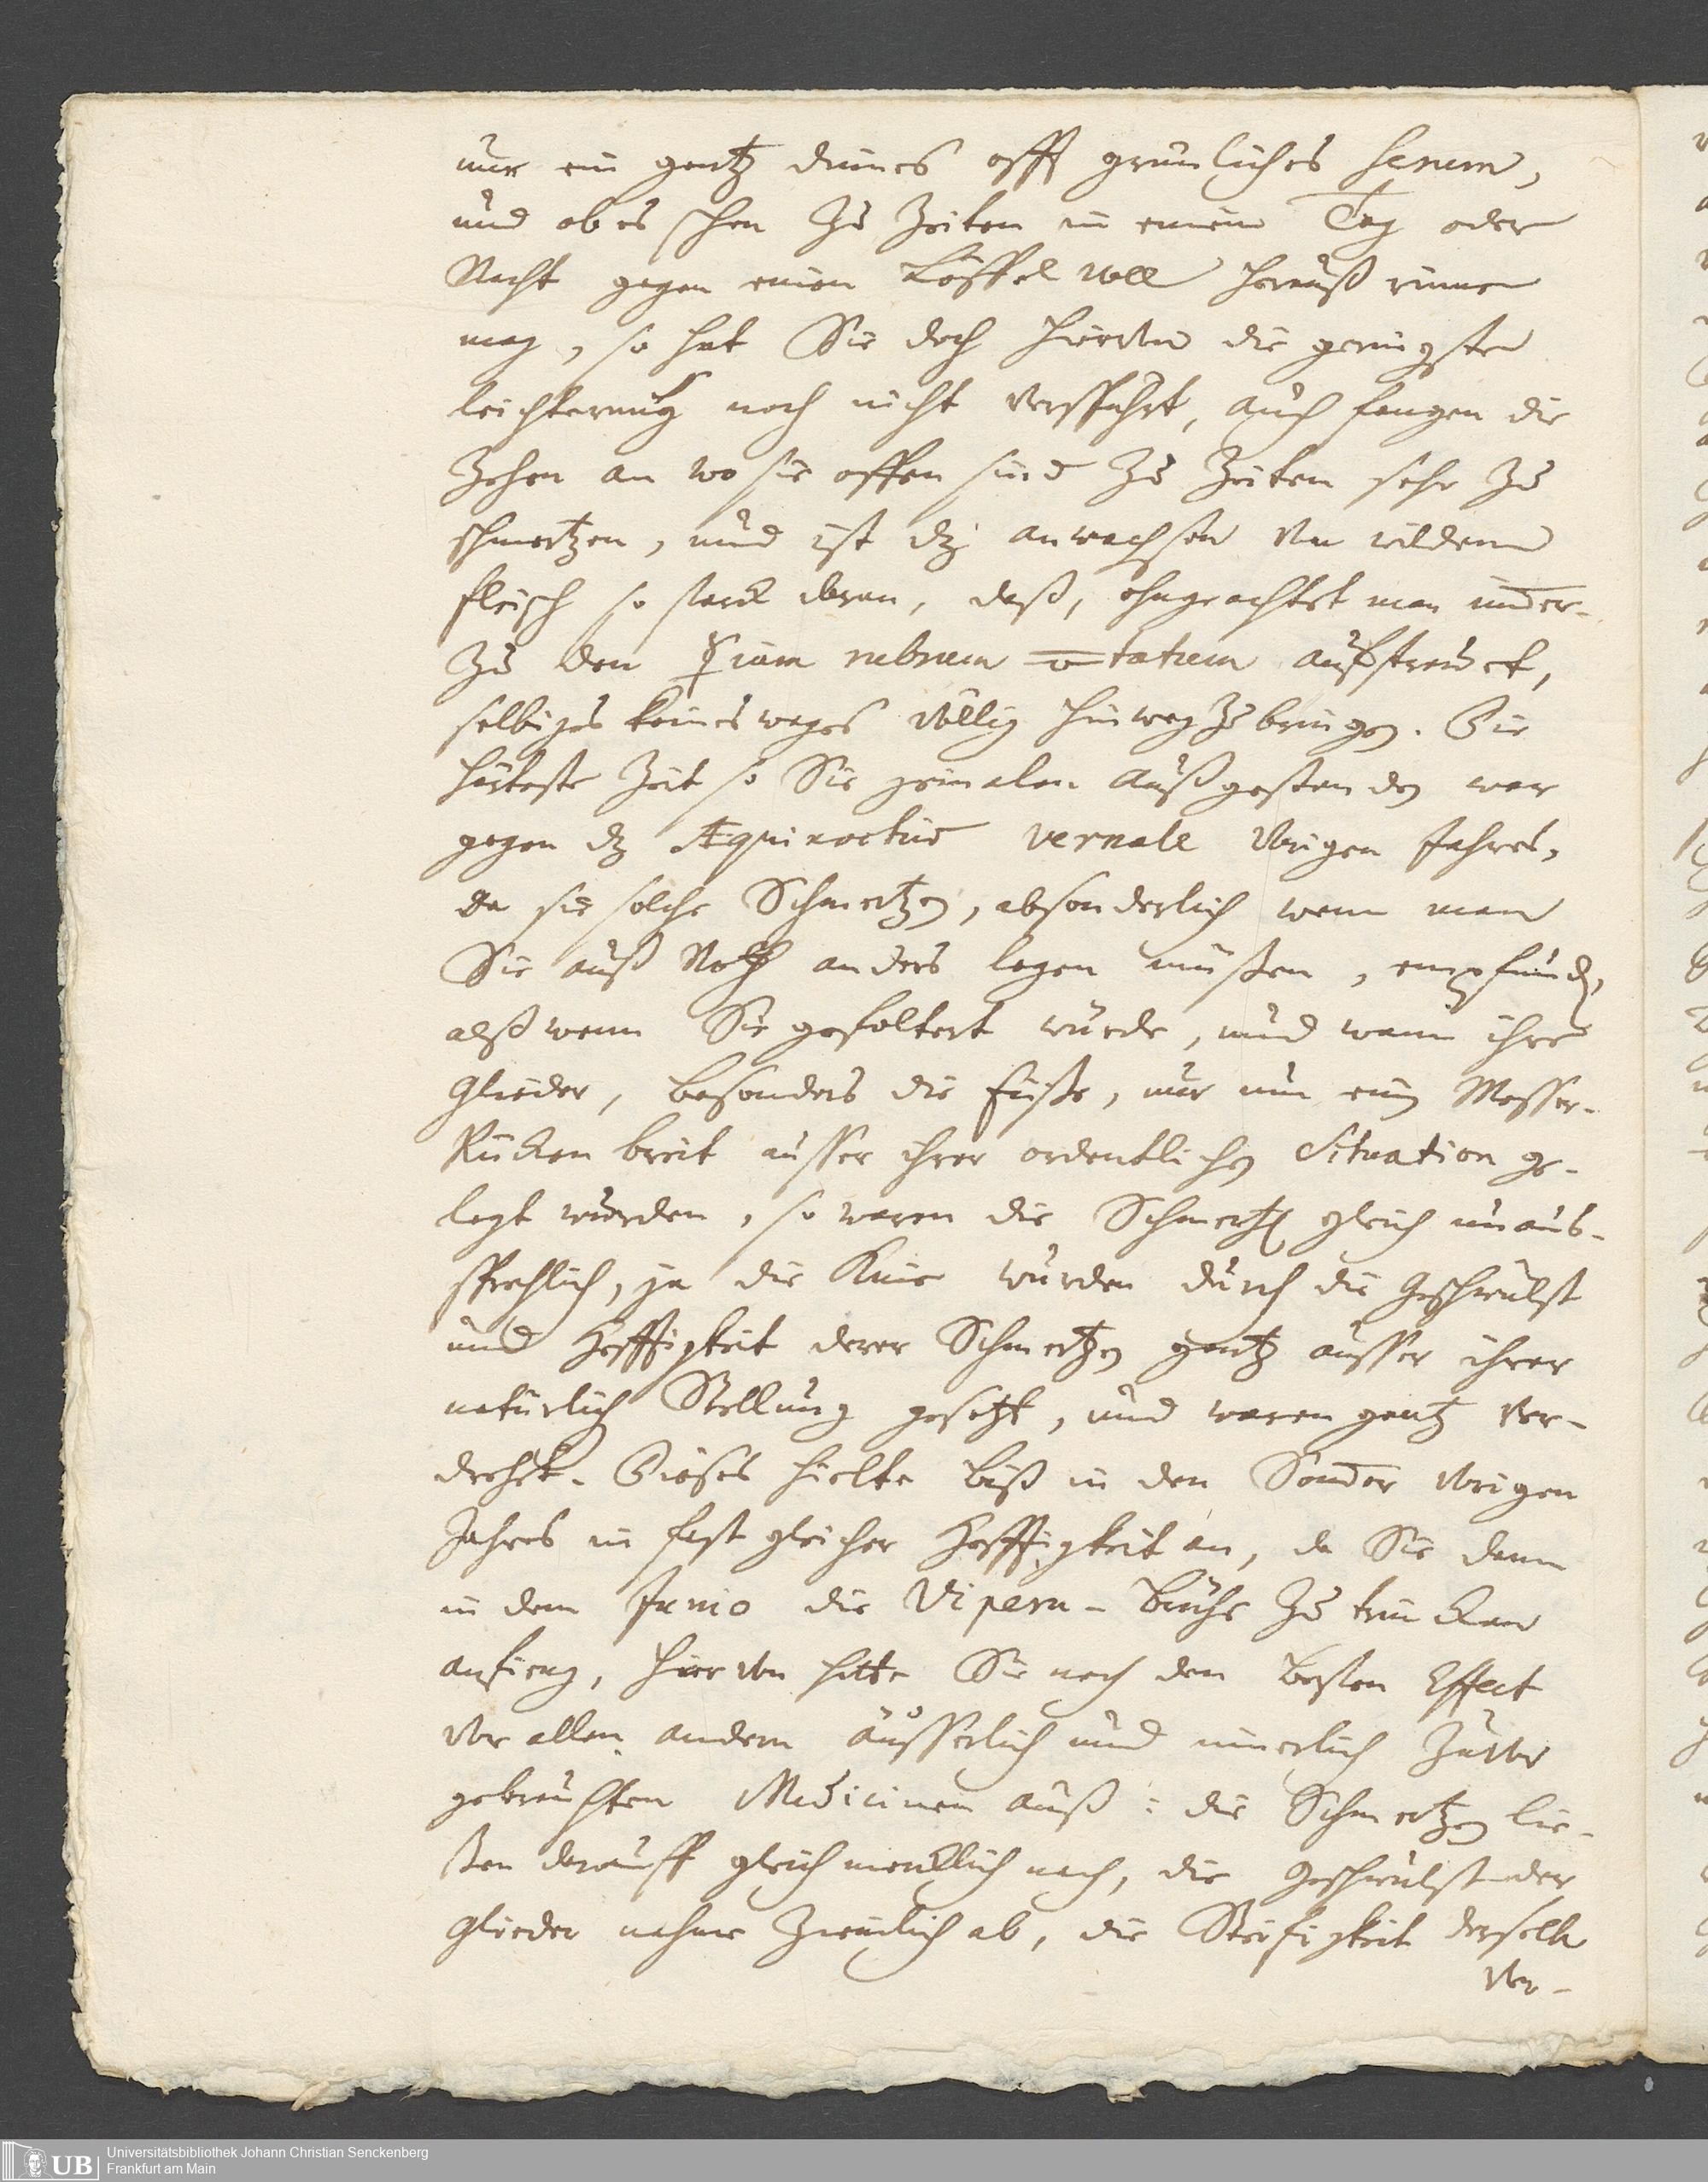 nur ein gantz dünnes offt grünliches serum,
und ob es schon zu Zeiten in einem Tag oder
Nacht gegen einen Löffel voll herauß rinnen
mag, so hat Sie doch hiervon die geringsten
leichterung noch nicht verspührt, auch fangen die
Zehen an wo sie offen sind zu Zeiten sehr zu
schmertzen, und ist dz anwachsen von wildem
fleisch so starck daran, daß, ohngeachtet man im̄er-
zu den ☿ium rubrum ptatum aufstreuet,
selbiges keines weges völlig hinweg zu bringen. Die
härteste Zeit so Sie jemalen außgestanden war
gegen dz Æquinoctiū vernale vorigen Jahres,
da sie solche Schmertzen, absonderlich wenn man
Sie auß Noth anders legen müßen, empfunden,
alß wenn Sie gefoltert würde, und wann ihre
Glieder, besonders die Füße, nur um ein Messer-
Rücken breit ausser ihrer ordentlichen Situation ge-
legt wurden, so waren die Schmertzen gleich unaus-
sprechlich, ja die Knie wurden durch die Geschwulst
und Hefftigkeit derer Schmertzen gantz ausser ihrer
natürlich Stellung gesetzt, und waren gantz ver-
drehet. Dieses hielte biß in den Som̄er vorigen
Jahres in fast gleicher Hefftigkeit an, da Sie dann
in dem Junio die Vipern-Brühe zu trincken
anfieng, hiervon hatte Sie noch den besten Effect
vor allen andern äusserlich und innerlich zuvor
gebrauchten Medicinen auß: die Schmertzen lie-
ßen darauff gleich mercklich nach, die Geschwulst der
Glieder nahme Ziemlich ab, die Steifigkeit derselben
ver-
Universitätsbibliothek Johann Christian Senckenberg
Frankfurt am Main
UB